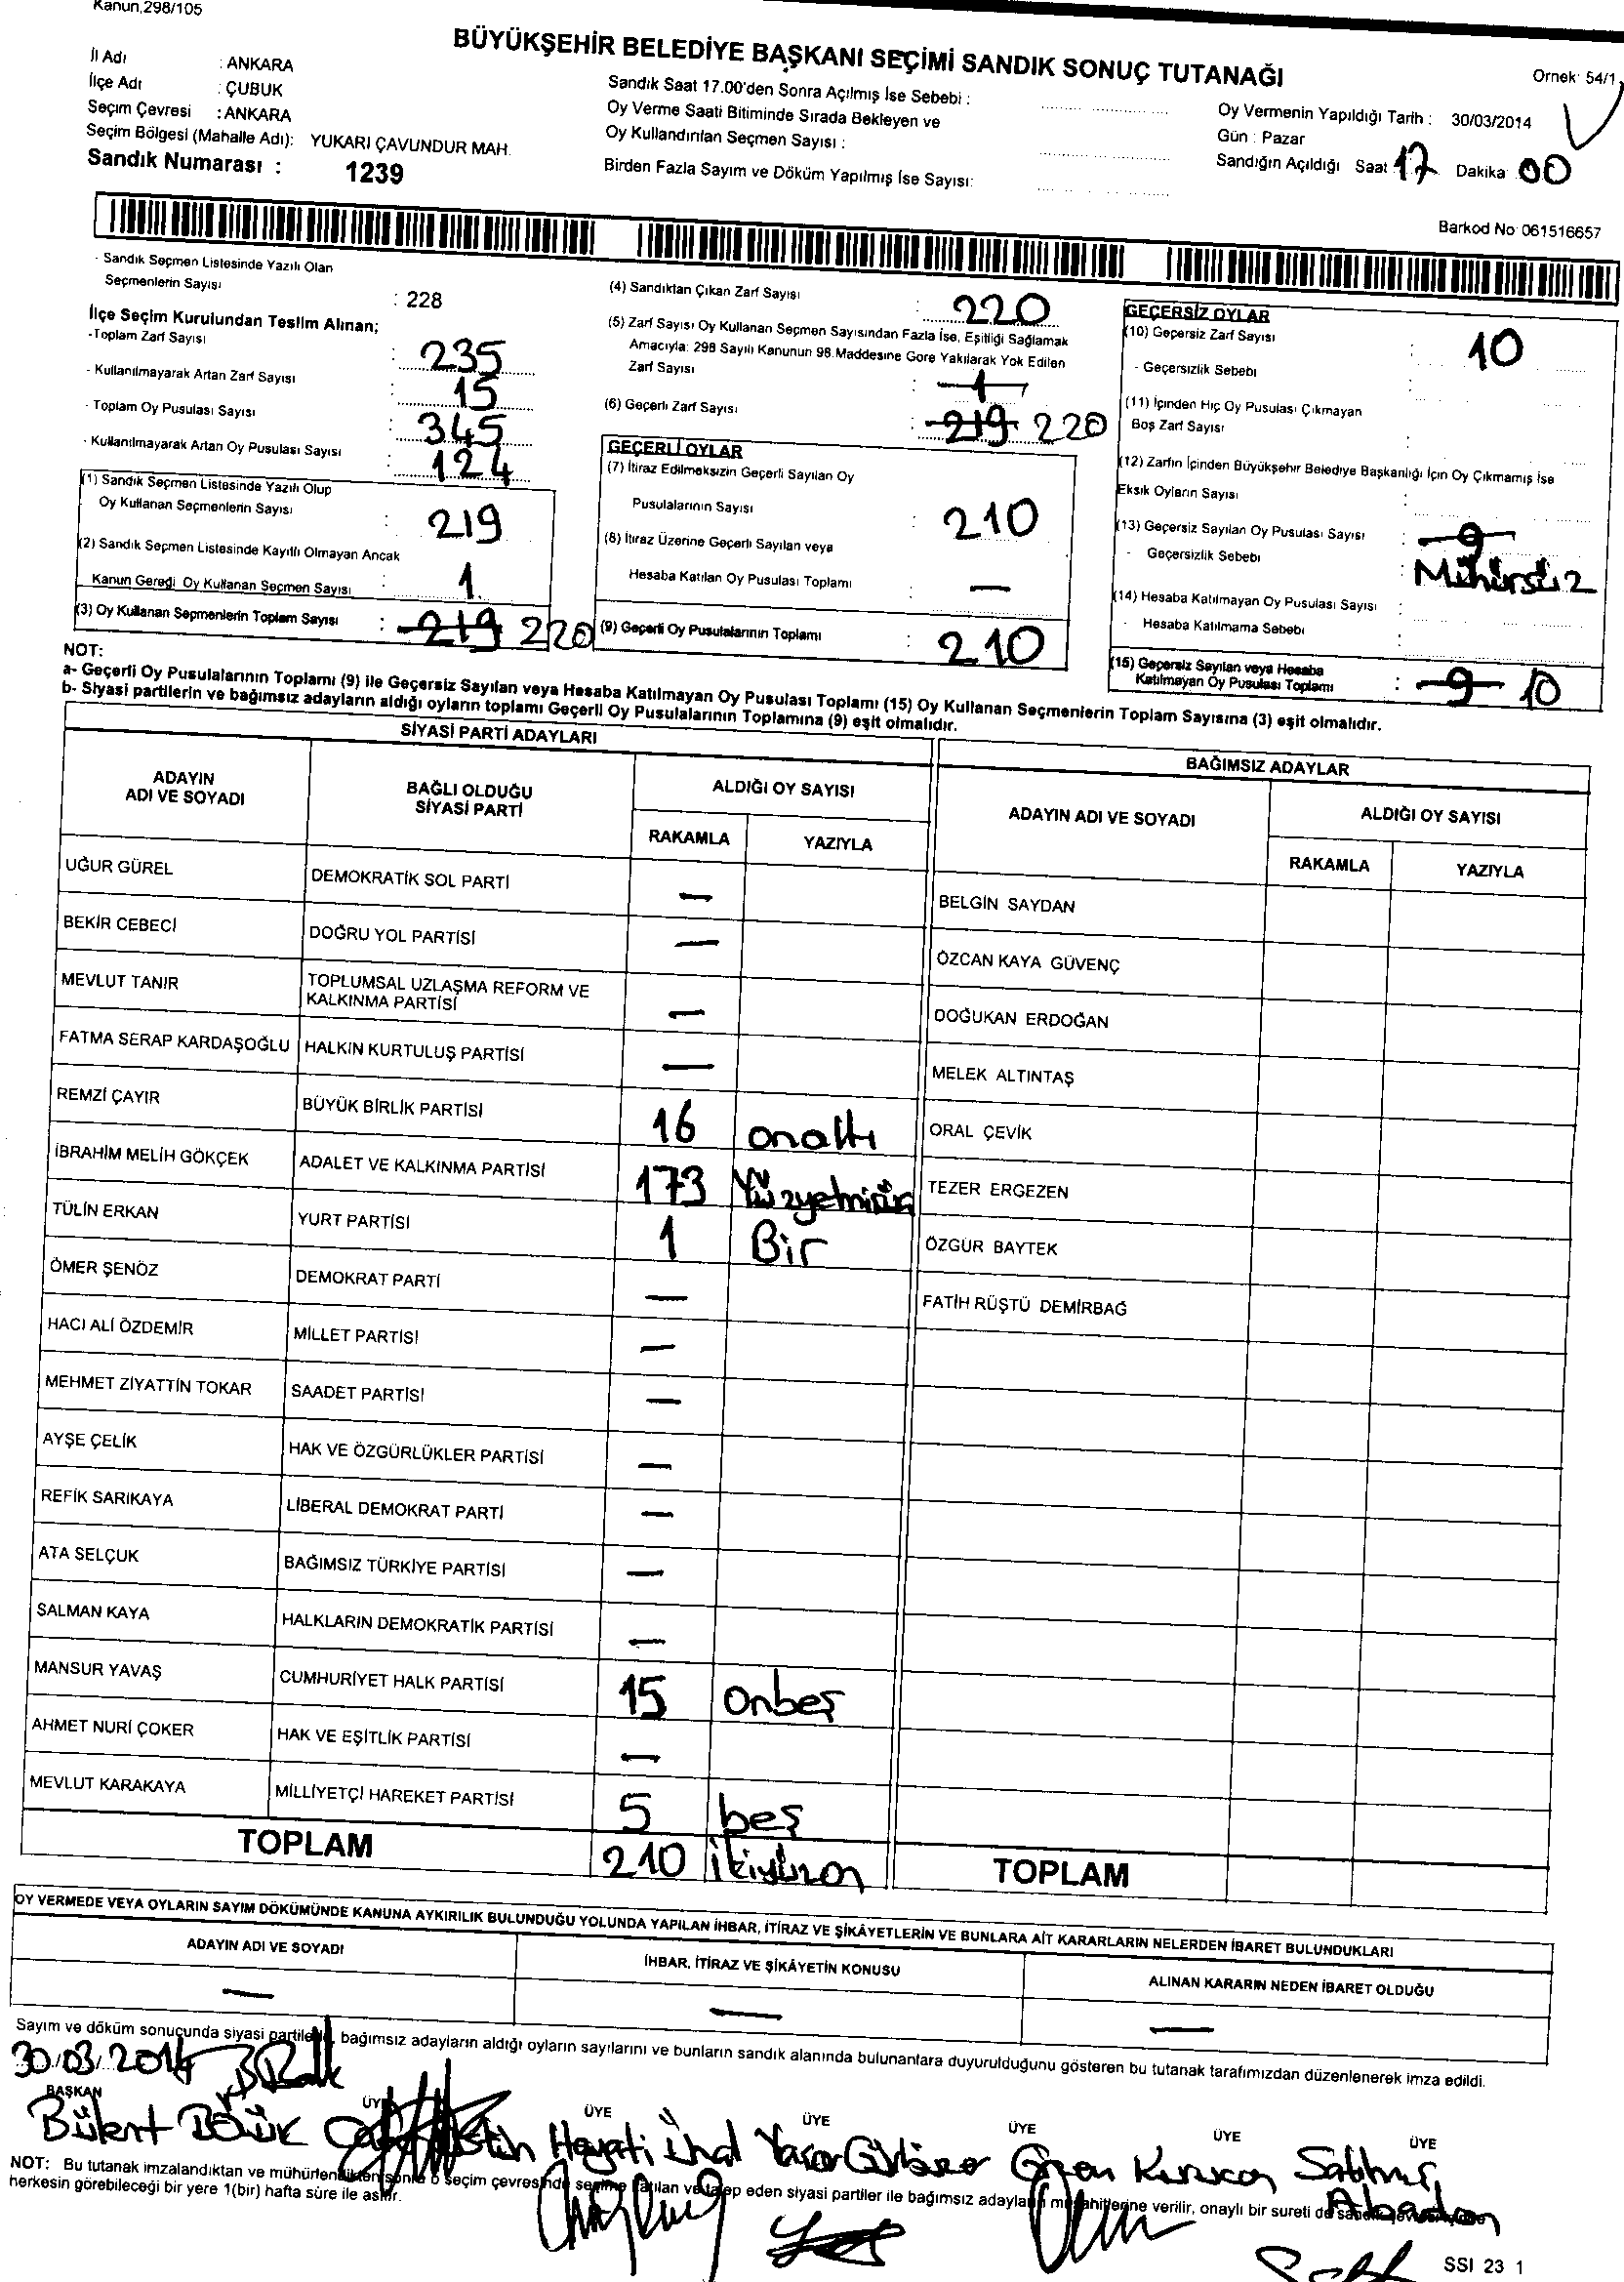 Kanun,298/105
BÜYÜKŞEHİR BELEDİYE BAŞKANI SEÇİMİ SANDIK SONUÇ TUTANAĞI
Örnek: 54/1
İl Adı : ANKARA
İlçe Adı : ÇUBUK
Seçim Çevresi : ANKARA
Seçim Bölgesi (Mahalle Adı): YUKARI ÇAVUNDUR MAH.
Sandık Numarası : 1239
Sandık Saat 17.00'den Sonra Açılmış İse Sebebi :
Oy Verme Saati Bitiminde Sırada Bekleyen ve
Oy Kullandırılan Seçmen Sayısı :
Birden Fazla Sayım ve Döküm Yapılmış İse Sayısı:
Oy Vermenin Yapıldığı Tarih : 30/03/2014
Gün : Pazar
Sandığın Açıldığı Saat 17 Dakika 00
Barkod No 061516657
- Sandık Seçmen Listesinde Yazılı Olan
Seçmenlerin Sayısı : 228
İlçe Seçim Kurulundan Teslim Alınan;
-Toplam Zarf Sayısı : 235
- Kullanılmayarak Artan Zarf Sayısı : 15
- Toplam Oy Pusulası Sayısı : 345
- Kullanılmayarak Artan Oy Pusulası Sayısı : 124
(1) Sandık Seçmen Listesinde Yazılı Olup
Oy Kullanan Seçmenlerin Sayısı : 219
(2) Sandık Seçmen Listesinde Kayıtlı Olmayan Ancak
Kanun Gereği Oy Kullanan Seçmen Sayısı : 1
(3) Oy Kullanan Seçmenlerin Toplam Sayısı : 219 220
(4) Sandıktan Çıkan Zarf Sayısı : 220
(5) Zarf Sayısı Oy Kullanan Seçmen Sayısından Fazla İse, Eşitliği Sağlamak
Amacıyla: 298 Sayılı Kanunun 98.Maddesine Göre Yakılarak Yok Edilen
Zarf Sayısı : 1
(6) Geçerli Zarf Sayısı : 219 220
GEÇERLİ OYLAR
(7) İtiraz Edilmeksizin Geçerli Sayılan Oy
Pusulalarının Sayısı : 210
(8) İtiraz Üzerine Geçerli Sayılan veya
Hesaba Katılan Oy Pusulası Toplamı : —
(9) Geçerli Oy Pusulalarının Toplamı : 210
GEÇERSİZ OYLAR
(10) Geçersiz Zarf Sayısı : 10
- Geçersizlik Sebebi :
(11) İçinden Hiç Oy Pusulası Çıkmayan
Boş Zarf Sayısı :
(12) Zarfın İçinden Büyükşehir Belediye Başkanlığı İçin Oy Çıkmamış İse
Eksik Oyların Sayısı :
(13) Geçersiz Sayılan Oy Pusulası Sayısı : 9
- Geçersizlik Sebebi : Mühürsüz
(14) Hesaba Katılmayan Oy Pusulası Sayısı :
- Hesaba Katılmama Sebebi :
(15) Geçersiz Sayılan veya Hesaba
Katılmayan Oy Pusulası Toplamı : 9 10
NOT:
a- Geçerli Oy Pusulalarının Toplamı (9) ile Geçersiz Sayılan veya Hesaba Katılmayan Oy Pusulası Toplamı (15) Oy Kullanan Seçmenlerin Toplam Sayısına (3) eşit olmalıdır.
b- Siyasi partilerin ve bağımsız adayların aldığı oyların toplamı Geçerli Oy Pusulalarının Toplamına (9) eşit olmalıdır.
SİYASİ PARTİ ADAYLARI
ADAYIN ADI VE SOYADI
BAĞLI OLDUĞU SİYASİ PARTİ
ALDIĞI OY SAYISI
RAKAMLA YAZIYLA
UĞUR GÜREL DEMOKRATİK SOL PARTİ —
BEKİR CEBECİ DOĞRU YOL PARTİSİ —
MEVLUT TANIR TOPLUMSAL UZLAŞMA REFORM VE KALKINMA PARTİSİ —
FATMA SERAP KARDAŞOĞLU HALKIN KURTULUŞ PARTİSİ —
REMZİ ÇAYIR BÜYÜK BİRLİK PARTİSİ 16 onaltı
İBRAHİM MELİH GÖKÇEK ADALET VE KALKINMA PARTİSİ 173
TÜLİN ERKAN YURT PARTİSİ 1 Bir
ÖMER ŞENÖZ DEMOKRAT PARTİ —
HACI ALİ ÖZDEMİR MİLLET PARTİSİ —
MEHMET ZİYATTİN TOKAR SAADET PARTİSİ —
AYŞE ÇELİK HAK VE ÖZGÜRLÜKLER PARTİSİ —
REFİK SARIKAYA LİBERAL DEMOKRAT PARTİ —
ATA SELÇUK BAĞIMSIZ TÜRKİYE PARTİSİ —
SALMAN KAYA HALKLARIN DEMOKRATİK PARTİSİ —
MANSUR YAVAŞ CUMHURİYET HALK PARTİSİ 15 onbeş
AHMET NURİ ÇOKER HAK VE EŞİTLİK PARTİSİ —
MEVLUT KARAKAYA MİLLİYETÇİ HAREKET PARTİSİ 5 beş
TOPLAM 210 ikiyüzon
BAĞIMSIZ ADAYLAR
ADAYIN ADI VE SOYADI
ALDIĞI OY SAYISI
RAKAMLA YAZIYLA
BELGİN SAYDAN
ÖZCAN KAYA GÜVENÇ
DOĞUKAN ERDOĞAN
MELEK ALTINTAŞ
ORAL ÇEVİK
TEZER ERGEZEN
ÖZGÜR BAYTEK
FATİH RÜŞTÜ DEMİRBAĞ
TOPLAM
OY VERMEDE VEYA OYLARIN SAYIM DÖKÜMÜNDE KANUNA AYKIRILIK BULUNDUĞU YOLUNDA YAPILAN İHBAR, İTİRAZ VE ŞİKÂYETLERİN VE BUNLARA AİT KARARLARIN NELERDEN İBARET BULUNDUKLARI
ADAYIN ADI VE SOYADI
İHBAR, İTİRAZ VE ŞİKÂYETİN KONUSU
ALINAN KARARIN NEDEN İBARET OLDUĞU
— — —
Sayım ve döküm sonucunda siyasi bağımsız adayların aldığı oyların sayılarını ve bunların sandık alanında bulunanlara duyurulduğunu gösteren bu tutanak tarafımızdan düzenlenerek imza edildi.
30.03.2014
BAŞKAN ÜYE ÜYE ÜYE ÜYE ÜYE ÜYE
Bülent Hayati Ünal
NOT: Bu tutanak imzalandıktan ve mühürlendikten sonra o seçim çevresinde seçime katılan ve talep eden siyasi partiler ile bağımsız adayların müşahitlerine verilir, onaylı bir sureti de
herkesin görebileceği bir yere 1(bir) hafta süre ile asılır.
SSI 23 1